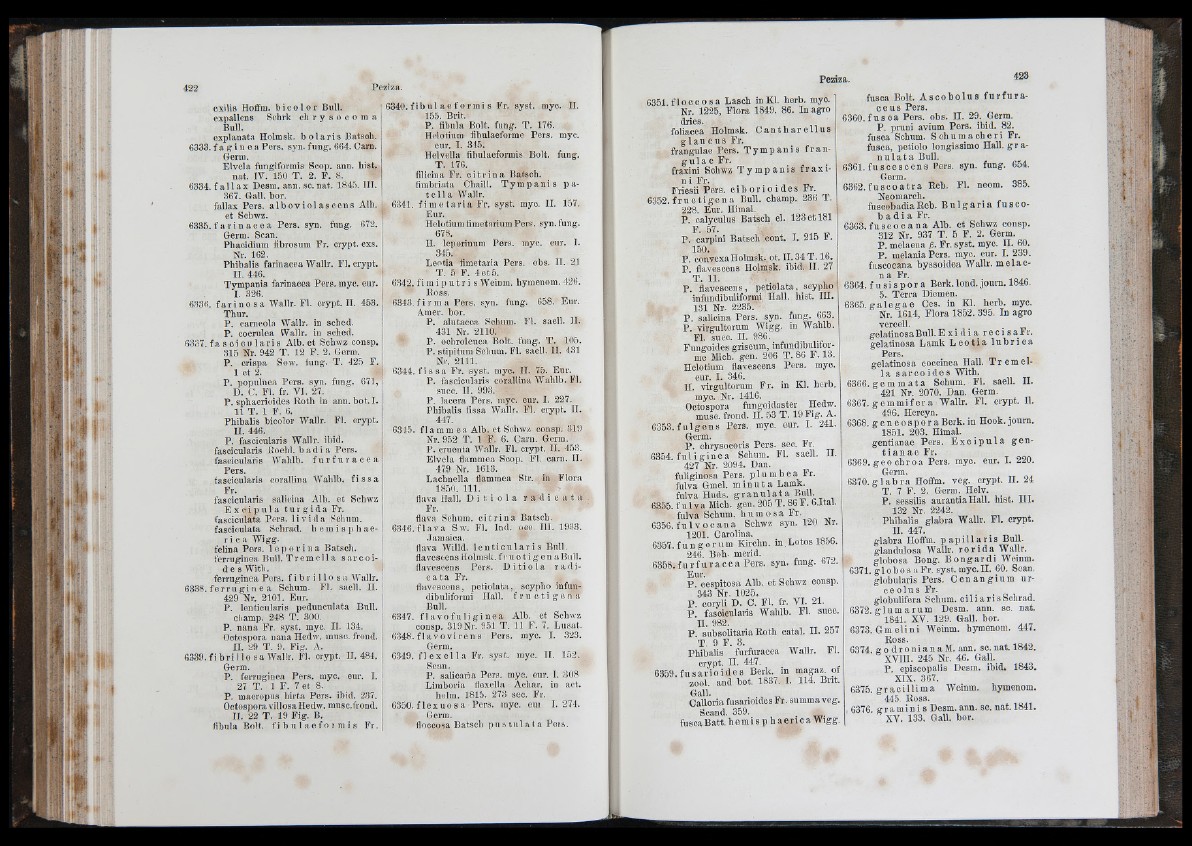 422
Peziza.
exilis Hoffm. bicolor Bull.
expallens Schrk chrysocoma
Bull.
explanata Holmsk. bolaris Batsch.
6333. faginea Pers. syn. fung. 664. Carn.
Germ.
Elvela fungiformis Scop. ann. hist.
nat. IV. 150 T. 2. F. 8.
6334. fallax Desm. ann. sc. nat. 1845. III.
367. Gall. bor.
fallax Pers. alboviolascens Alb.
et Schwz.
6335. farinacea Pers. syn. fung. 672.
Germ. Scan.
Phacidium fibrosum Fr. crypt. exs.
Nr. 162.
Phibalis farinacea Wallr. Fl. crypt.
II. 446.
Tympanis farinacea Pers. myc. eur.
I. 326.
6336. farinosa Wallr. Fl. crypt. II. 453.
Thur.
P. carneola Wallr. in sched.
P. coerulea Wallr. in sched.
6337. fascicularis Alb. et Schwz consp.
315 Nr. 942 T. 12 F. 2. Germ.
P. crispa Sow. fung. T. 425 F.
1 et 2.
P. populnea Pers. syn. fung. 671,
D. C. Fl. fr. VI. 27.
P. sphaerioides Roth in ann. bot. I.
11 T. 1 F. 6.
Phibalis bicolor Wallr. Fl. crypt.
II. 446.
P. fascicularis Wallr. ibid.
fascicularis Roehl. badia Pers.
fascicularis Wahlb. furfuracea
Pers.
fascicularis corallina Wahlb. fissa
Fr.
fascicularis salicina Alb. et Schwz
Excipula turgida Fr.
fasciculata Pers. livida Schum.
fasciculata Schrad. hemisphae-
rica Wigg.
felina Pers. leporina Batsch.
ferruginea Bull. Tremella sarcoi-
des With.
ferruginea Pers. fibrillosa Wallr.
6338. ferruginea Schum. Fl. saell. II.
429 Nr. 2101. Eur.
P. lenticularis pedunculata Bull.
champ. 248 T. 300.
P. nana Fr. syst. myc. II. 134.
Octospora nana Hedw. musc. frond.
II. 29 T. 9. Fig. A.
6339. fibrillosa Wallr. Fl. crypt. II. 484.
Germ.
P. ferruginea Pers. myc. eur. I.
27 T. 1 F. 7 et 8.
P. macropus hirta Pers. ibid. 237.
Octospora villosa Hedw. musc. frond.
II. 22 T. 19 Fig. B.
fibula Bolt. fibulaeformis Fr.
6340. fibulaeformis Fr. syst. myc. II.
155. Brit.
P. fibula Bolt. fung. T. 176.
Helotium fibulaeforme Pers. myc.
eur. I. 345.
Helvella fibulaeformis Bolt. fung.
T. 176.
filicina Fr. citrina Batsch.
fimbriata Chaill. Tympanis pa-
tella Wallr.
6341. fimetaria Fr. syst. myc. II. 157.
Eur.
Helotium fimetarium Pers. syn. fung.
678.
H. leporinum Pers. myc. eur. I.
345.
Leotia fimetaria Pers. obs. II. 21
T. 5 F. 4 et 5.
6342. fimiputris Weinm. hymenom. 426.
Ross.
6343. firma Pers. syn. fung. 658. Eur.
Amer. bor.
P. alutacea Schum. Fl. saell. II.
431 Nr. 2110.
P. ochroleuca Bolt. fung. T. 105.
P. stipitum Schum. Fl. saell. II. 431
Nr. 2111.
6344. fissa Fr. syst. myc. II. 75. Eur.
P. fascicularis corallina Wahlb. Fl.
suec. II. 993.
P. lacera Pers. myc. eur. I. 227.
Phibalis fissa Wallr. Fl. crypt. II.
447.
6345. flammea Alb. et Schwz consp. 319
Nr. 952 T. 1 F. 6. Carn. Germ.
P. cruenta Wallr. Fl. crypt. II. 453.
Elvela flammea Scop. Fl. carn. II.
479 Nr. 1613.
Lachnella flammea Str. in Flora
1850. 111.
flava Hall. Ditiola radicata
Fr.
flava Schum. citrina Batsch.
6346. flava Sw. Fl. Ind. occ III. 1938.
Jamaica.
flava Willd. lenticularis Bull.
flavescens Holmsk. fructigena Bull.
flavescens Pers. Ditiola radi-
cata Fr.
flavescens, petiolata, scypho infun-
dibuliformi Hall. fructigena
Bull.
6347. flavofuliginea Alb. et Schwz
consp. 319 Nr. 951 T. 11 F. 7. Lusat.
6348. flavovirens Pers. myc. I. 323.
Germ.
6349. flexella Fr. syst. myc. II. 152.
Scan.
P. salicaria Pers. myc. eur. I. 308
Limboria flexella Achar. in act.
holm. 1815. 273 sec. Fr.
6350. flexuosa Pers. myc. eur I. 274.
Germ.
floccosa Batsch pustulata Pers.
Peziza.
423
6351. floccosa Lasch in Kl. herb. myc.
Nr. 1225, Flora 1849. 86. In agro
dries.
foliacea Holmsk. Cantharellus
glaucus Fr.
frangulae Pers. Tympanis fran-
gulae Fr.
fraxini Schwz Tympanis fraxi-
ni Fr.
Friesii Pers. ciborioides Fr.
6352. fructigena Bull. champ. 236 T.
228. Eur. Himal.
P. calyculus Batsch el. 123 et 181
F. 57.
P. carpini Batsch cont. I. 215 F.
150.
P. convexa Holmsk. ot. II. 34 T. 16.
P. flavescens Holmsk. ibid. II. 27
T. 11.
P. flavescens, petiolata, scypho
infundibuliformi Hall. hist. III.
131 Nr. 2235.
P. salicina Pers. syn. fung. 663.
P. virgultorum Wigg. in Wahlb.
Fl. suec. II. 986.
Fungoides griseum, infundibulifor-
me Mich. gen. 206 T. 86 F. 13.
Helotium flavescens Pers. myc.
eur. I. 346.
H. virgultorum Fr. in Kl. herb.
myc. Nr. 1416.
Octospora fungoidaster Hedw.
musc. frond. II. 53 T. 19 Fig. A.
6353. fulgens Pers. myc. eur. I. 241.
Germ.
P. chrysocoris Pers. sec. Fr.
6354. fuliginea Schum. Fl. saell. II.
427 Nr. 2094. Dan.
fuliginosa Pers. plumbea Fr.
fulva Gmel. minuta Lamk.
fulva Huds. granulata Bull.
6355. fulva Mich. gen. 205 T. 86 F. 6. Ital.
fulva Schum. humosa Fr.
6356. fulvocana Schwz syn. 120 Nr.
1201. Carolina.
6357. fungorum Kirchn. in Lotos 1856.
246. Boh. merid.
6358. furfuracea Pers. syn. fung. 672.
Eur.
P. cespitosa Alb. et Schwz consp.
343 Nr. 1025.
P. coryli D. C. Fl. fr. VI. 21.
P. fascicularis Wahlb. Fl. suec.
II. 982.
P. subsolitaria Roth catal. II. 257
T. 9 F. 3.
Phibalis furfuracea Wallr. Fl.
crypt. II. 447.
6359. fusarioides Berk. in magaz. of
zool. and bot. 1837. I. 114. Brit.
Gall.
Calloria fusarioides Fr. summa veg.
Scand. 359.
fusca Batt. hemisphaerica Wigg.
fusca Bolt. Ascobolus furfura-
ceus Pers.
6360. fusca Pers. obs. II. 29. Germ.
P. pruni avium Pers. ibid. 82.
fusca Schum. Schumacheri Fr.
fusca, petiolo longissimo Hall. gra-
nulata Bull.
6361. fuscescens Pers. syn. fung. 654.
Germ.
6362. fuscoatra Reb. Fl. neom. 385.
Neomarch.
fuscobadia Reb. Bulgaria fusco-
badia Fr.
6363. fuscocana Alb. et Schwz consp.
312 Nr. 937 T. 5 F. 2. Germ.
P. melaena β. Fr. syst. myc. II. 60.
P. melania Pers. myc. eur. I. 239.
fuscocana byssoidea Wallr. melae-
na Fr.
6364. fusispora Berk. lond. journ. 1846.
5. Terra Diemen.
6365. galegae Ces. in Kl. herb. myc.
Nr. 1614, Flora 1852. 395. In agro
vercell.
gelatinosa Bull. Exidia recisa Fr.
gelatinosa Lamk Leotia lubrica
Pers.
gelatinosa coccinea Hall. Tremel-
la sarcoides With.
6366. gemmata Schum. Fl. saell. II.
421 Nr. 2070. Dan. Germ.
6367. gemmifera Wallr. Fl. crypt. II.
496. Hercyn.
6368. geneospora Berk. in Hook. journ.
1851. 203. Himal.
gentianae Pers. Excipula gen-
tianae Fr.
6369. geochroa Pers. myc. eur. I. 220.
Germ.
6370. glabra Hoffm. veg. crypt. II. 24
T. 7 F. 2. Germ. Helv.
P. sessilis aurantia Hall. hist. III.
132 Nr. 2242.
Phibalis glabra Wallr. Fl. crypt.
II. 447.
glabra Hoffm. papillaris Bull.
glandulosa Wallr. rorida Wallr.
globosa Bong. Bongardi Weinm.
6371. globosa Fr. syst. myc. II. 60. Scan.
globularis Pers. Cenangium ur-
ceolus Fr.
globulifera Schum. ciliaris Schrad.
6372. glumarum Desm. ann. sc. nat.
1841. XV. 129. Gall. bor.
6373. Gmelini Weinm. hymenom. 447.
Ross.
6374. godroniana M. ann. sc. nat. 1842.
XVIII. 245 Nr. 46. Gall.
P. episcopalis Desm. ibid. 1843.
XIX. 367.
6375. gracillima Weinm. hymenom.
445. Ross.
6376. graminis Desm. ann. sc. nat. 1841.
XV. 133. Gall. bor.